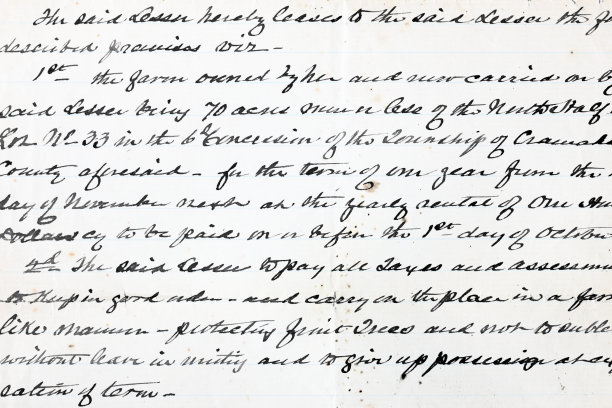 The said Lessor hereby leases to the said Lessee the
described premises viz -
1st the farm owned by her and now carried on
said Lessee being 70 acres more or less of the North
Lot No. 33 in the 6th Concession of the Township of
County aforesaid - for the term of one year from the
day of November next at the yearly rental of One
Dollars cy to be paid on or before the 1st day of October
2d The said Lessee to pay all Taxes and
to Keep in good order - and carry on the place in a
like manner - protecting fruit Trees and not to
without leave in writing and to give up possession at
of term -